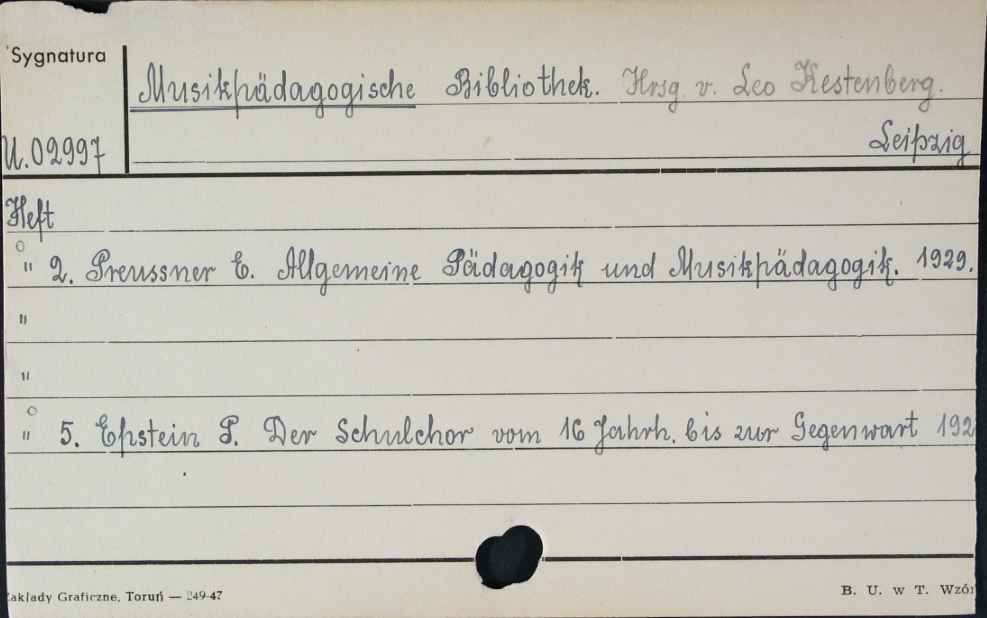 Sygnatura
Musikpädagogische Bibliothek. Hrsg. v. Leo Kestenberg.
U.02997
Leipzig
Heft
" 2. Preussner E. Allgemeine Pädagogik und Musikpädagogik. 1929.
"
"
" 5. Epstein P. Der Schulchor vom 16 Jahrh. bis zur Gegenwart 192
akłady Graficzne, Toruń — 249-47
B. U. w T. Wzór